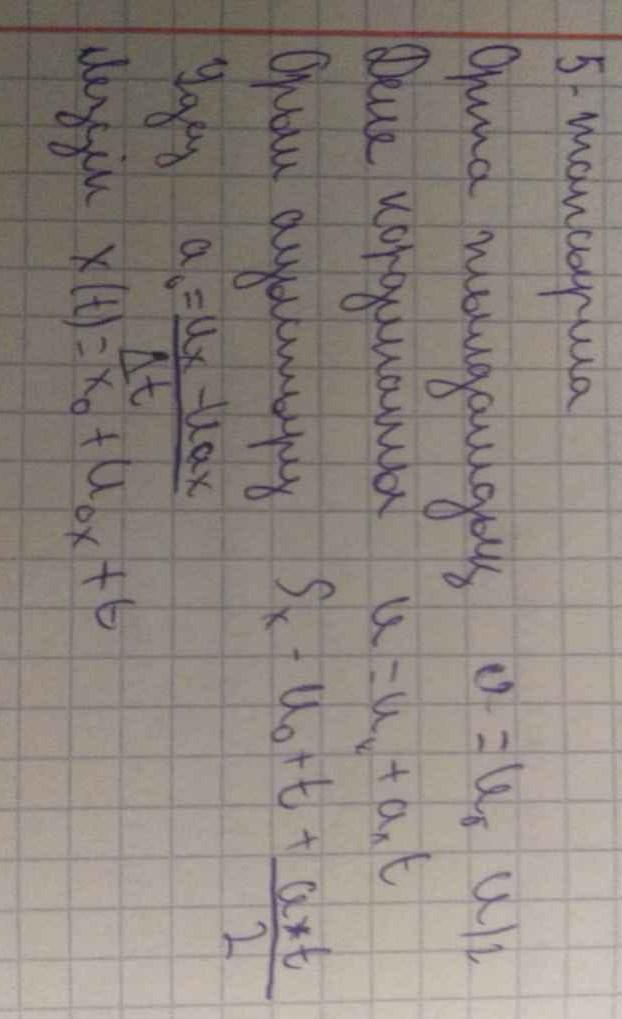 5-тапсырма
Орта жылдамдық υ = u₀ u/2
Дене кординаты u = uₓ + aₓt
Орын ауыстыру Sₓ - u₀ + t + aₓt/2
Үдеу a = uₓ - uax / Δt
x(t) = x₀ + u₀ₓ + t